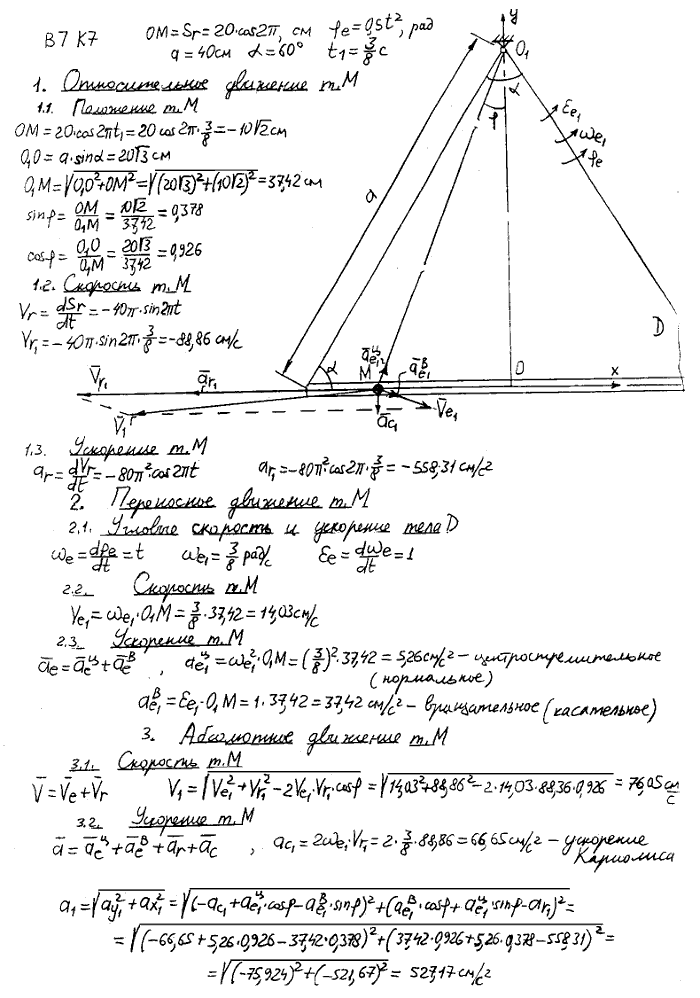 В7 К7
OM=Sr=20·cos2π, см φe=0,5t², рад
a=40см α=60° t1=3/8 с
1. Относительное движение т.М
1.1. Положение т.М
OM=20·cos2πt1=20cos2π·3/8=-10√2см
O1O=a·sinα=20√3см
O1M=√(O1O²+OM²)=√((20√3)²+(10√2)²)=37,42 см
sinρ=OM/O1M=10√2/37,42=0,378
cosρ=O1O/O1M=20√3/37,42=0,926
1.2. Скорость т.М
Vr=dSr/dt=-40π·sin2πt
Vr1=-40π·sin2π·3/8=-88,86 см/с
y
O1
α
ρ
εe1
ωe1
φe
a
D
α
M
āe1ц
āe1в
O
x
V̄r1
ār1
V̄1
āc1
V̄e1
1.3. Ускорение т.М
ar=dVr/dt=-80π²·cos2πt ar1=-80π²·cos2π·3/8=-558,31 см/с²
2. Переносное движение т.М
2.1. Угловые скорость и ускорение тела D
ωe=dφe/dt=t ωe1=3/8 рад/с εe=dωe/dt=1
2.2. Скорость т.М
Ve1=ωe1·O1M=3/8·37,42=14,03см/с
2.3. Ускорение т.М
āe=āeц+āeв, ae1ц=ωe1²·O1M=(3/8)²·37,42=5,26см/с²-центростремительное
(нормальное)
ae1в=εe1·O1M=1·37,42=37,42 см/с²-вращательное (касательное)
3. Абсолютное движение т.М
3.1. Скорость т.М
V̄=V̄e+V̄r V1=√(Ve1²+Vr1²-2Ve1·Vr1·cosρ)=√(14,03²+88,86²-2·14,03·88,36·0,926)=76,05 см/с
3.2. Ускорение т.М
ā=āeц+āeв+ār+āc, ac1=2ωe1·Vr1=2·3/8·88,86=66,65см/с²-ускорение
Кариолиса
a1=√(ay1²+ax1²)=√((-ac1+ae1ц·cosρ-ae1в·sinρ)²+(ae1в·cosρ+ae1ц·sinρ-ar1)²)=
=√((-66,65+5,26·0,926-37,42·0,378)²+(37,42·0,926+5,26·0,378-558,31)²)=
=√((-75,924)²+(-521,67)²)=527,17см/с²